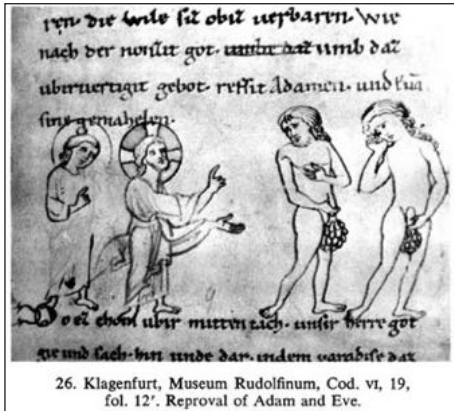 ren. die wile siu obiz uerbaren. Wie
nach der nonzit got. umbe daz umb daz
ubiruertigit gebot. reffit Adamen. und Euā
sine gemahelen.
o ez chom ubir mitten tach. unsir herre got
gie und sach. hin unde dar. in dem paradise daz
26. Klagenfurt, Museum Rudolfinum, Cod. VI, 19,
fol. 12ʳ. Reproval of Adam and Eve.